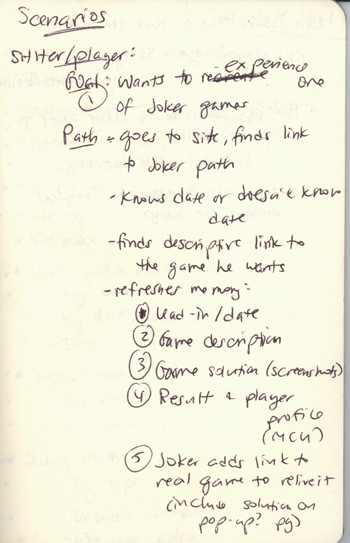 Scenarios
Sitter/player:
Goal: Wants to experience one
① of Joker games
Path - goes to site, finds link
to Joker path
- Knows date or doesn't know
date
- finds descriptive link to
the game he wants
- refreshes memory:
① Lead-in/date
② Game description
③ Game solution (screenshots)
④ Result & player
profile
(MCU)
⑤ Joker adds link to
real game to relive it
(include solution on
pop-up? pg)